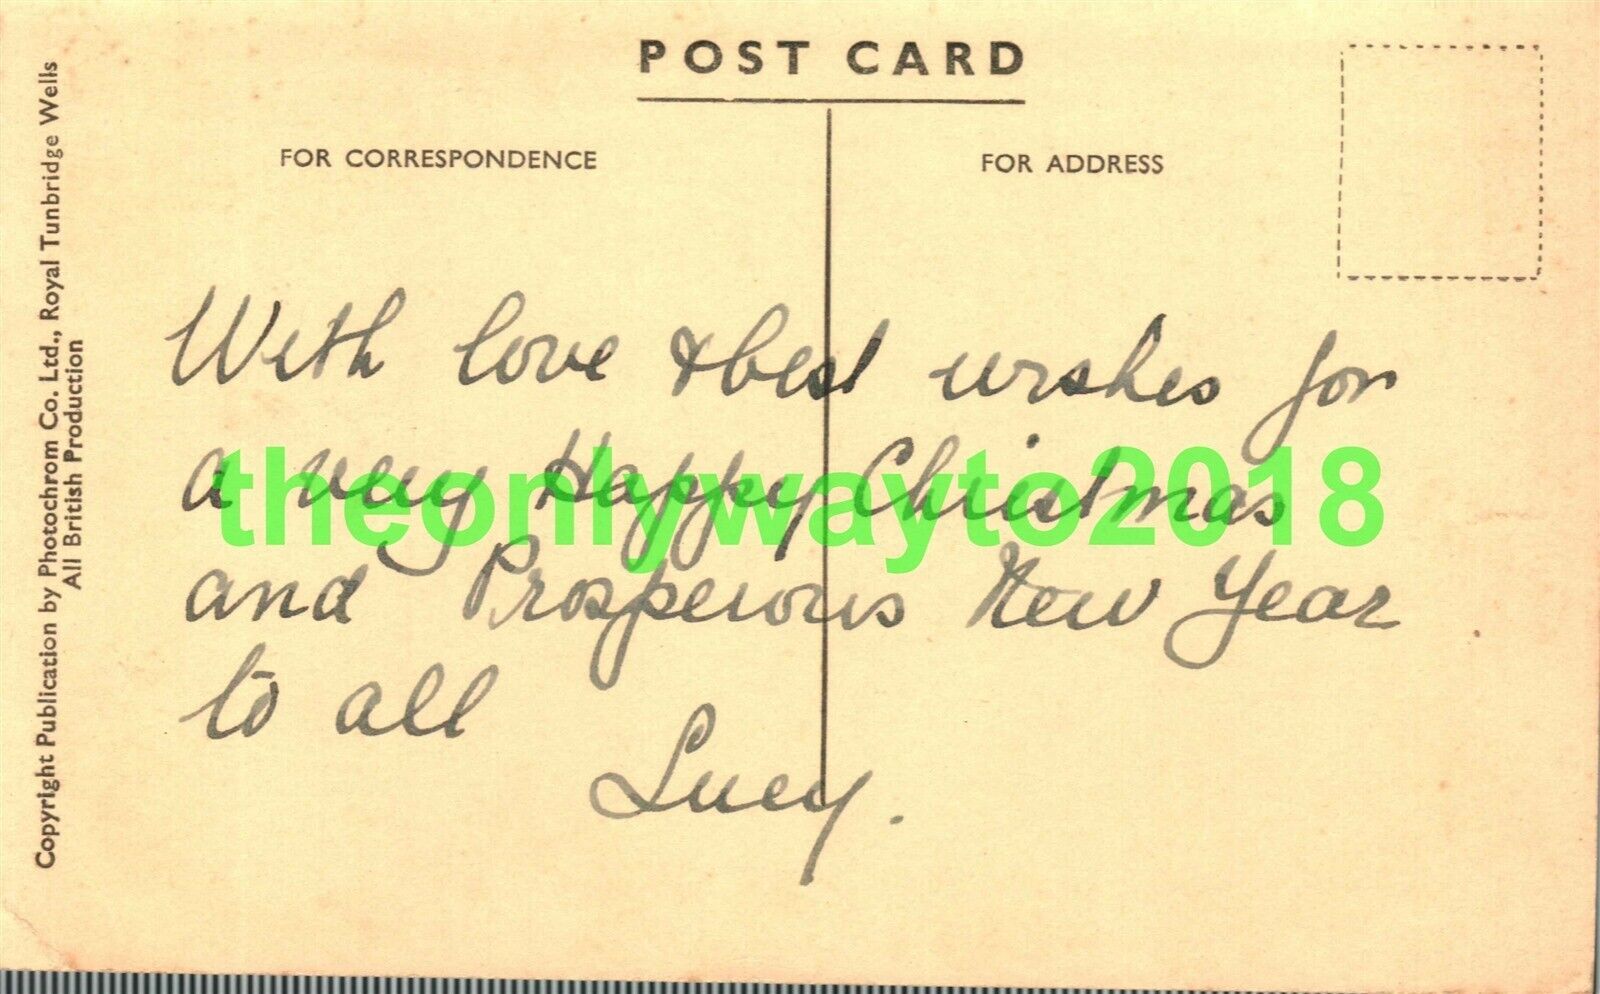 POST CARD
FOR CORRESPONDENCE
FOR ADDRESS
Copyright Publication by Photochrom Co. Ltd., Royal Tunbridge Wells
All British Production
With love & best wishes for
a very Happy Christmas
and Prosperous New Year
to all
Lucy.
theonlywayto2018